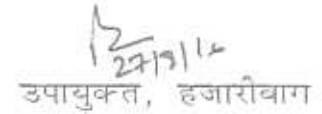 27/9/16
उपायुक्त, हजारीबाग